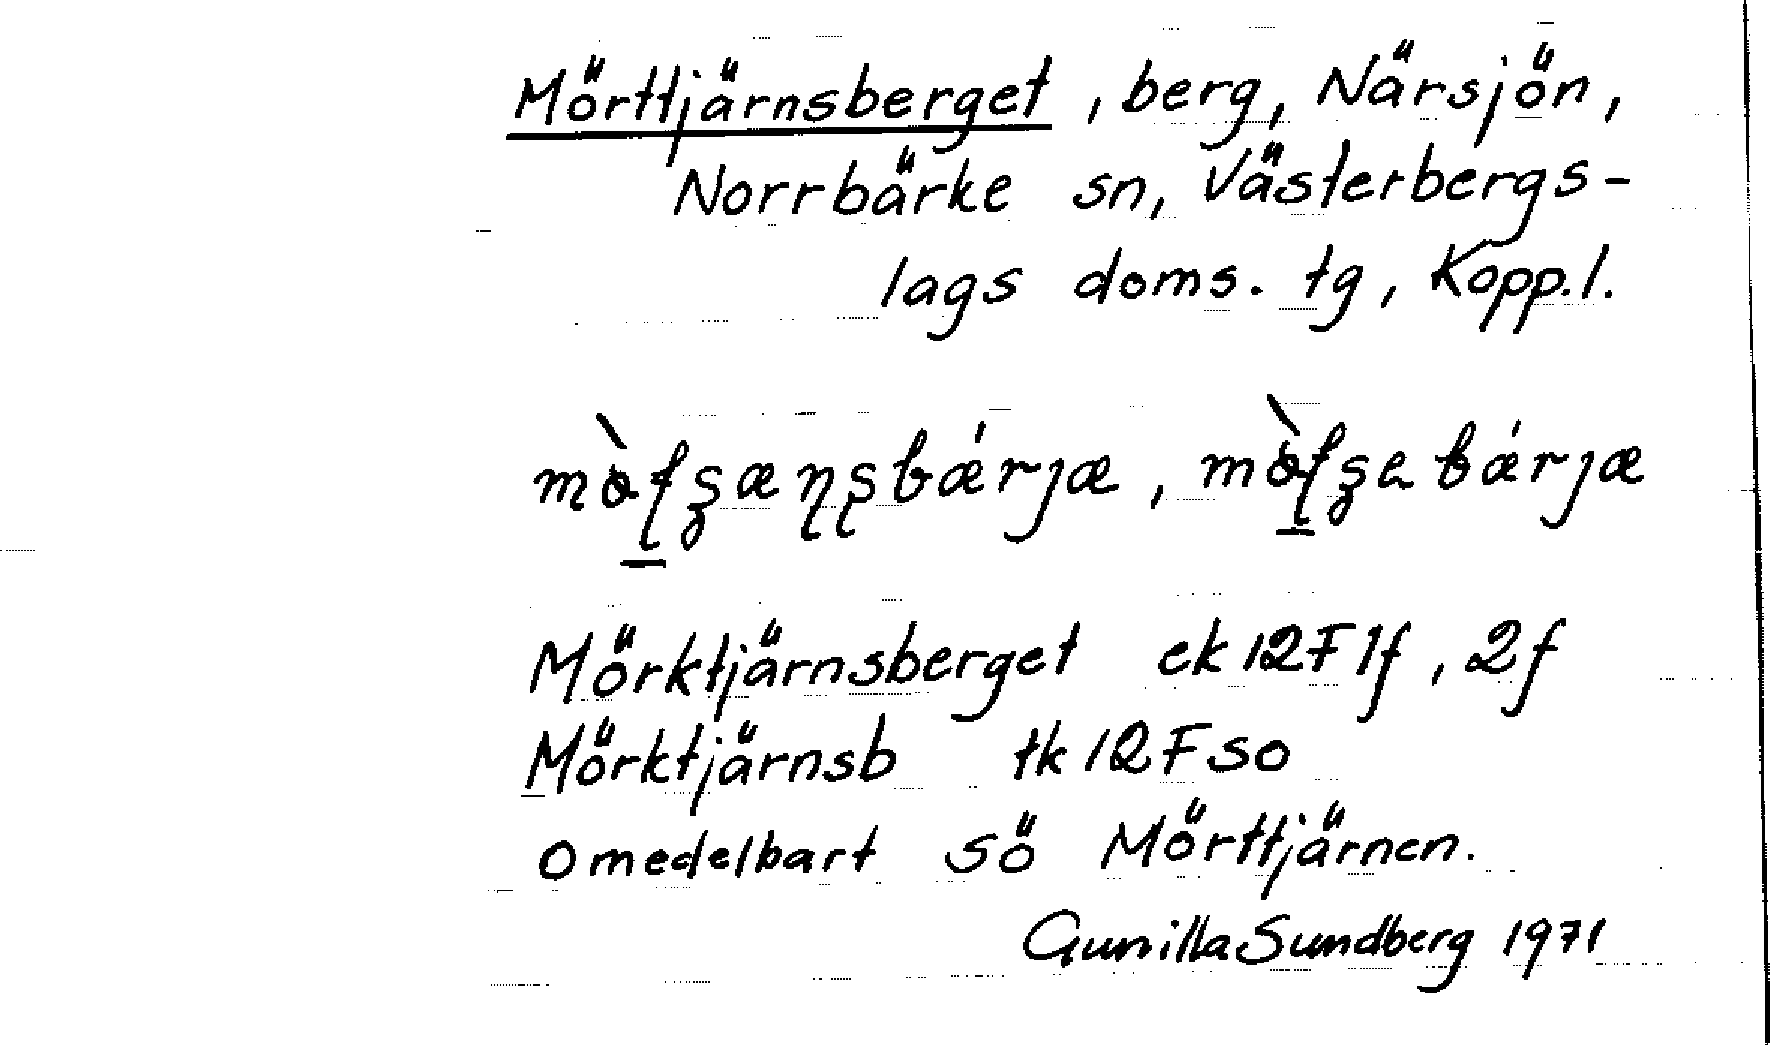 Mörttjärnsberget, berg, Närsjön,
Norrbärke sn, Västerbergs-
lags doms. tg, Kopp.l.
Mörktjärnsberget ek 12F 1f, 2f
Mörktjärnsb tk 12F SO
Omedelbart SÖ Mörttjärnen.
Gunilla Sundberg 1971